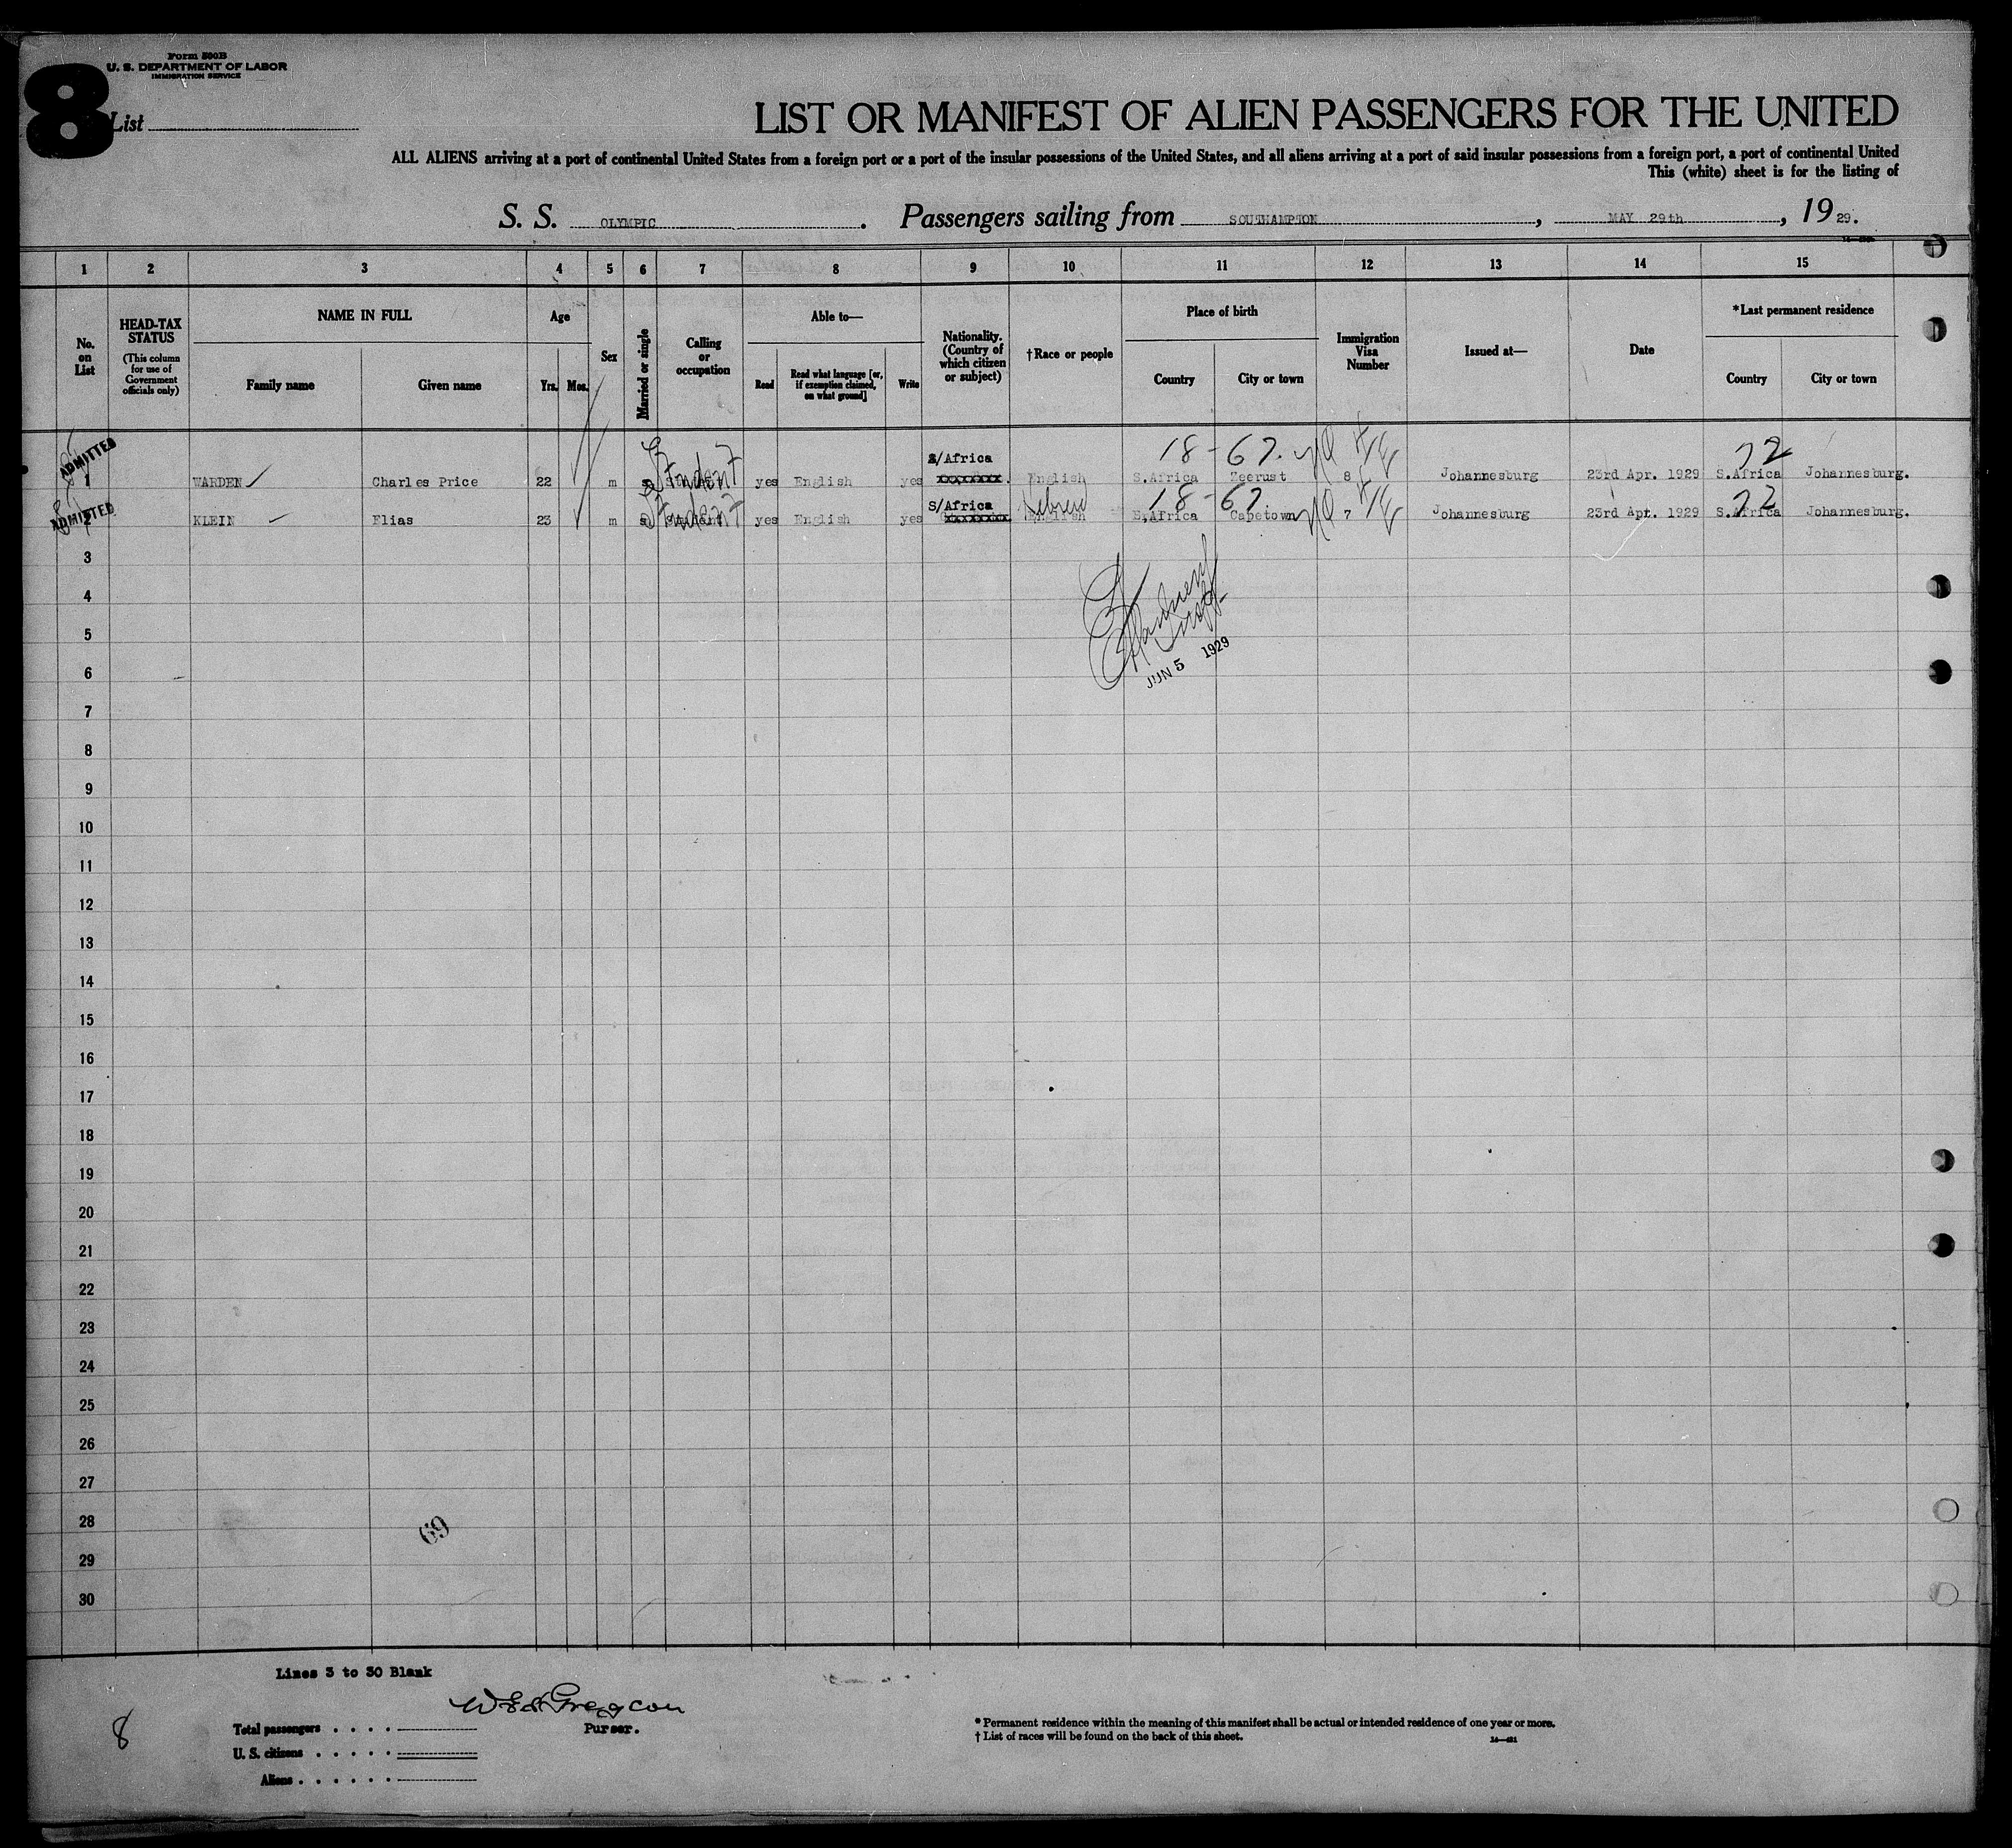 8
Form 500B
U. S. DEPARTMENT OF LABOR
IMMIGRATION SERVICE
List
LIST OR MANIFEST OF ALIEN PASSENGERS FOR THE UNITED
ALL ALIENS arriving at a port of continental United States from a foreign port or a port of the insular possessions of the United States, and all aliens arriving at a port of said insular possessions from a foreign port, a port of continental United
This (white) sheet is for the listing of
S. S. OLYMPIC. Passengers sailing from SOUTHAMPTON, MAY 29th, 19 29.
1 2 3 4 5 6 7 8 9 10 11 12 13 14 15
No. on List
HEAD-TAX STATUS
(This column for use of Government officials only)
NAME IN FULL
Family name Given name
Age
Yrs. Mos.
Sex
Married or single
Calling or occupation
Able to—
Read
Read what language [or, if exemption claimed, on what ground]
Write
Nationality. (Country of which citizen or subject)
†Race or people
Place of birth
Country City or town
Immigration Visa Number
Issued at—
Date
*Last permanent residence
Country City or town
18-67. 72
ADMITTED
1 WARDEN Charles Price 22 m s Student yes English yes S/Africa English S.Africa Zeerust 8 Johannesburg 23rd Apr. 1929 S.Africa Johannesburg.
18-67 72
ADMITTED
2 KLEIN Elias 23 m s Student yes English yes S/Africa Hebrew English S,Africa Capetown 7 Johannesburg 23rd Apr. 1929 S.Africa Johannesburg.
3
4
5
6
JUN 5 1929
7
8
9
10
11
12
13
14
15
16
17
18
19
20
21
22
23
24
25
26
27
28
69
29
30
Lines 3 to 30 Blank
Purser.
8
Total passengers
U. S. citizens
Aliens
* Permanent residence within the meaning of this manifest shall be actual or intended residence of one year or more.
† List of races will be found on the back of this sheet.
14—421